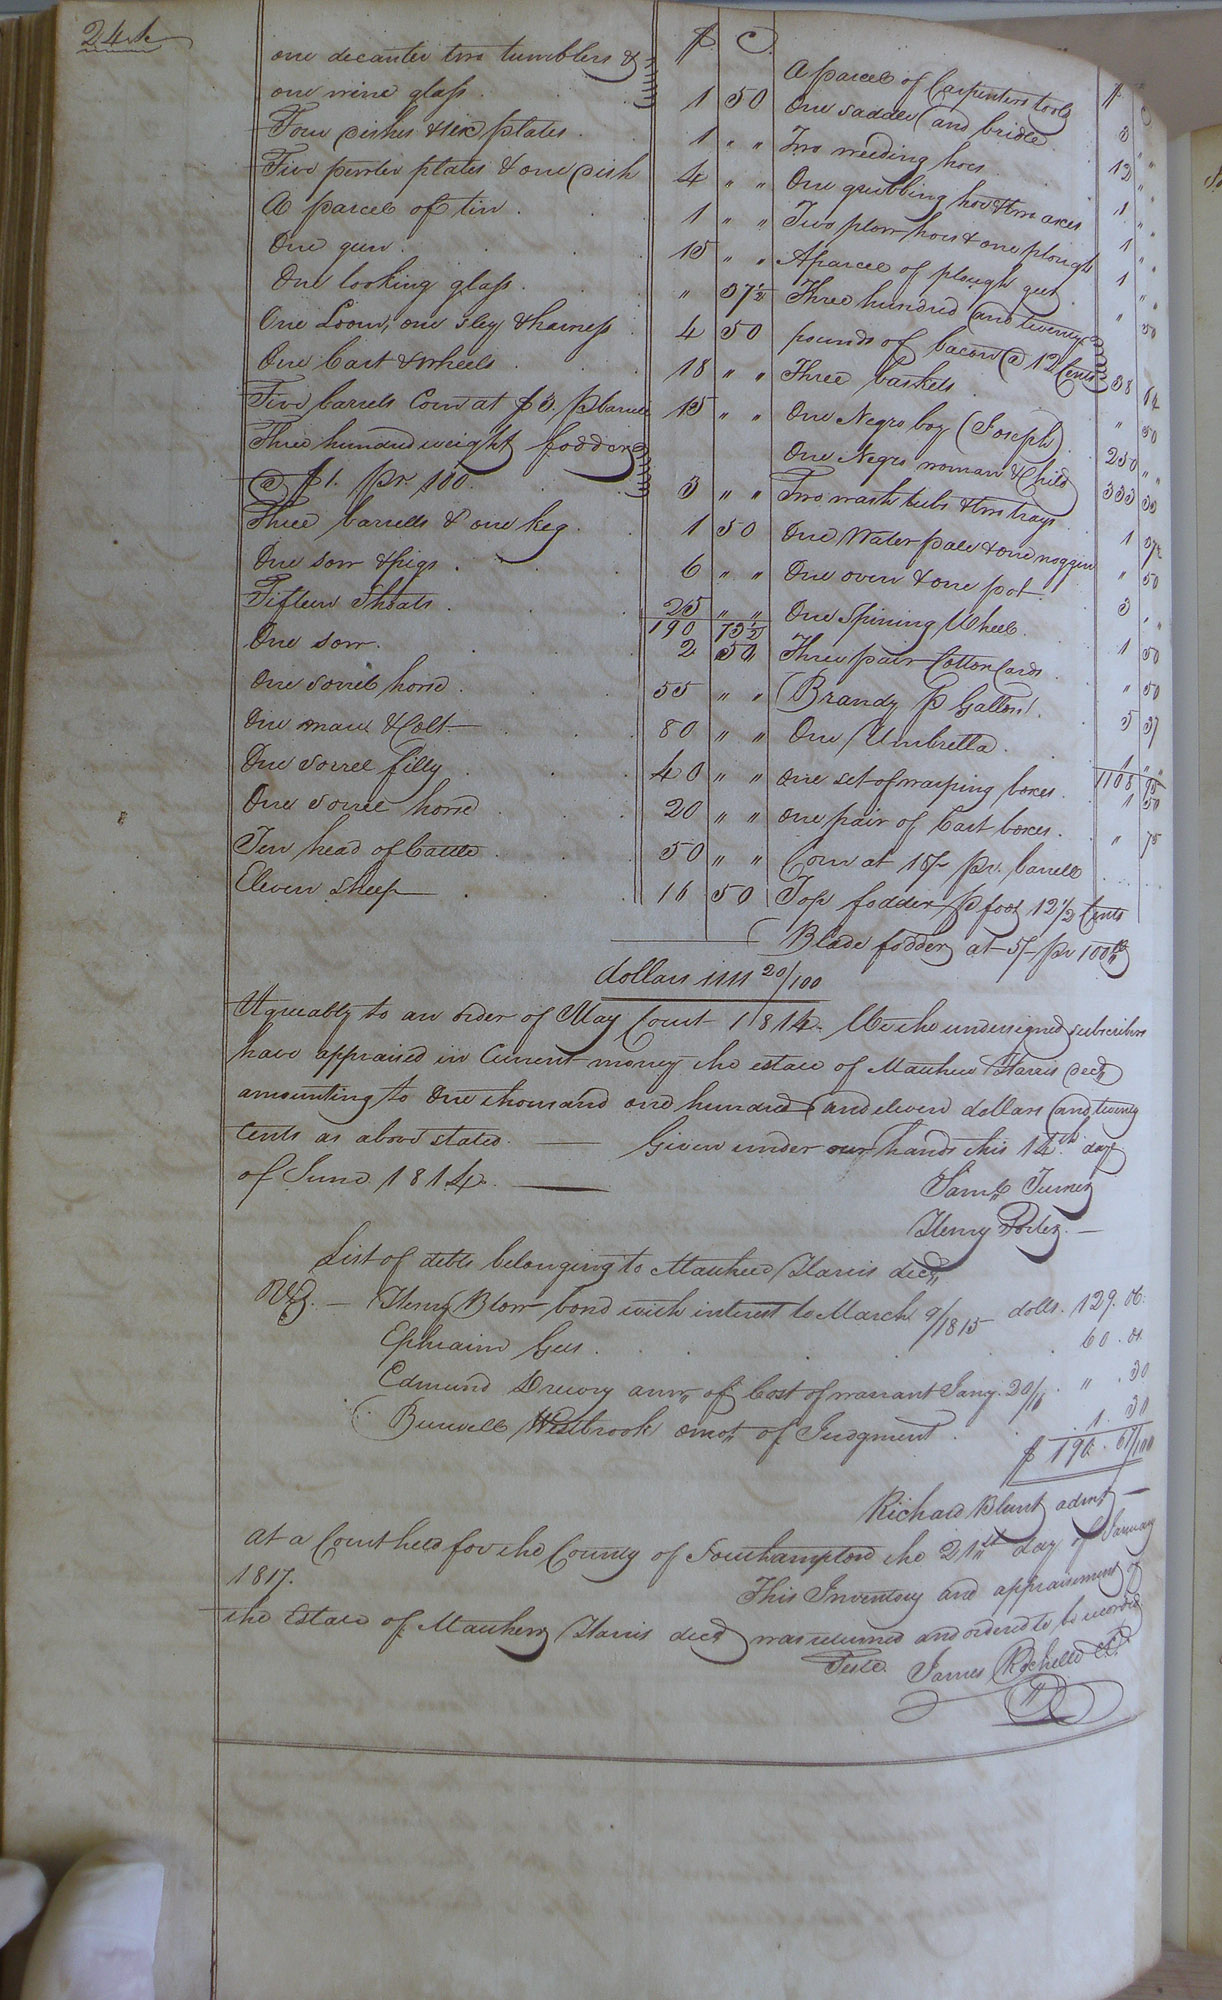 24th
$ C
one decanter two tumblers &
one wine glass . 1 50
Four dishes & six plates . 1 " "
Five pewter plates & one dish 4 " "
A parcel of tin . 1 " "
One gun . 15 " "
One looking glass . " 37½
One Loom, one sley & harness 4 50
One Cart & wheels 18 " "
Five barrels Corn at $3. p barrel 15 " "
Three hundred weight fodder
@ $1. pr. 100. 3 " "
Three barrells & one keg . 1 50
One sow & pigs . 6 " "
Fifteen Shoats . 25 " "
190 73½
One sow . 2 50
One sorrel horse . 55 " "
One mare & Colt 80 " "
One sorrel filly 40 " "
One sorrel horse 20 " "
Ten head of Cattle 50 " "
Eleven sheep 16 50
$ C
A parcel of Carpenters tools 3 " "
One saddle and bridle 12 " "
Two weeding hoes 1 " "
One grubbing hoe & two axes 1 " "
Two plow hoes & one plough 1 " "
A parcel of plough gear . " 50
Three hundred and twenty
pounds of bacon @ 12 Cents 38 64
Three baskets " 50
One Negro boy (Joseph) 250 " "
One Negro woman & Child 333 33
Two wash tubs & two trays 1 37½
One Water pale & one noggin " 50
One oven & one pot . 3 " "
One Spining Wheel . 1 50
Three pair Cotton Cards . " 50
Brandy p Gallon . 5 37
One Umbrella . 1 " "
1108 95
One set of warping boxes . 1 50
One pair of Cart boxes . " 75
Corn at 15/- pr. barrell
Top fodder p foot 12½ Cents
Blade fodder at 5/- pr 100 lb
dollars 1111 20/100
Agreeably to an order of May Court 1814. We the undersigned subscribers
have appraised in Current money the estate of Mathew Harris decd
amounting to One thousand one hundred and eleven dollars and twenty
Cents as above stated. Given under our hands this 14th. day
of June 1814.
Saml. Turner
Henry Porter.
List of debts belonging to Mathew Harris decd,,
Viz. Henry Blow bond with interest to March 9/1815 dolls. 129. 00.
Ephraim Gees . 60 . 01
Edmund Drewry amt,, of Cost of warrant Jany. 20/16 . " . 30
Burwell Westbrook amot,, of Judgment . 1. 30
$ 190. 61/100
Richard Blunt admr
At a Court held for the County of Southampton the 21st day of January
1817.
This Inventory and appraisement of
the Estate of Mathew Harris decd was returned and ordered to be recorded
Teste. James Rochelle C.C.